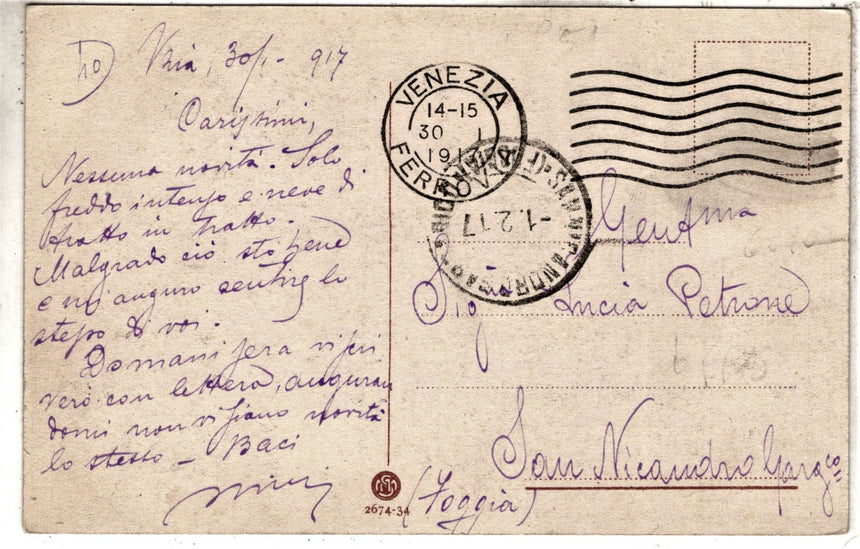 10
Vnia, 30/1 - 917
Carissimi,
Nessuna novità. Solo
freddo intenso e neve di
tratto in tratto.
Malgrado ciò sto bene
e mi auguro sentire lo
stesso di voi.
Domani sera vi scri
verò con lettera, auguran
domi non vi siano novità
lo stesso - Baci
VENEZIA
14-15
30 1
1917
FERROVIA
-1.2.17
Gentma
Sig Lucia Petrone
San Nicandro Gargco
(Foggia)
2674-34